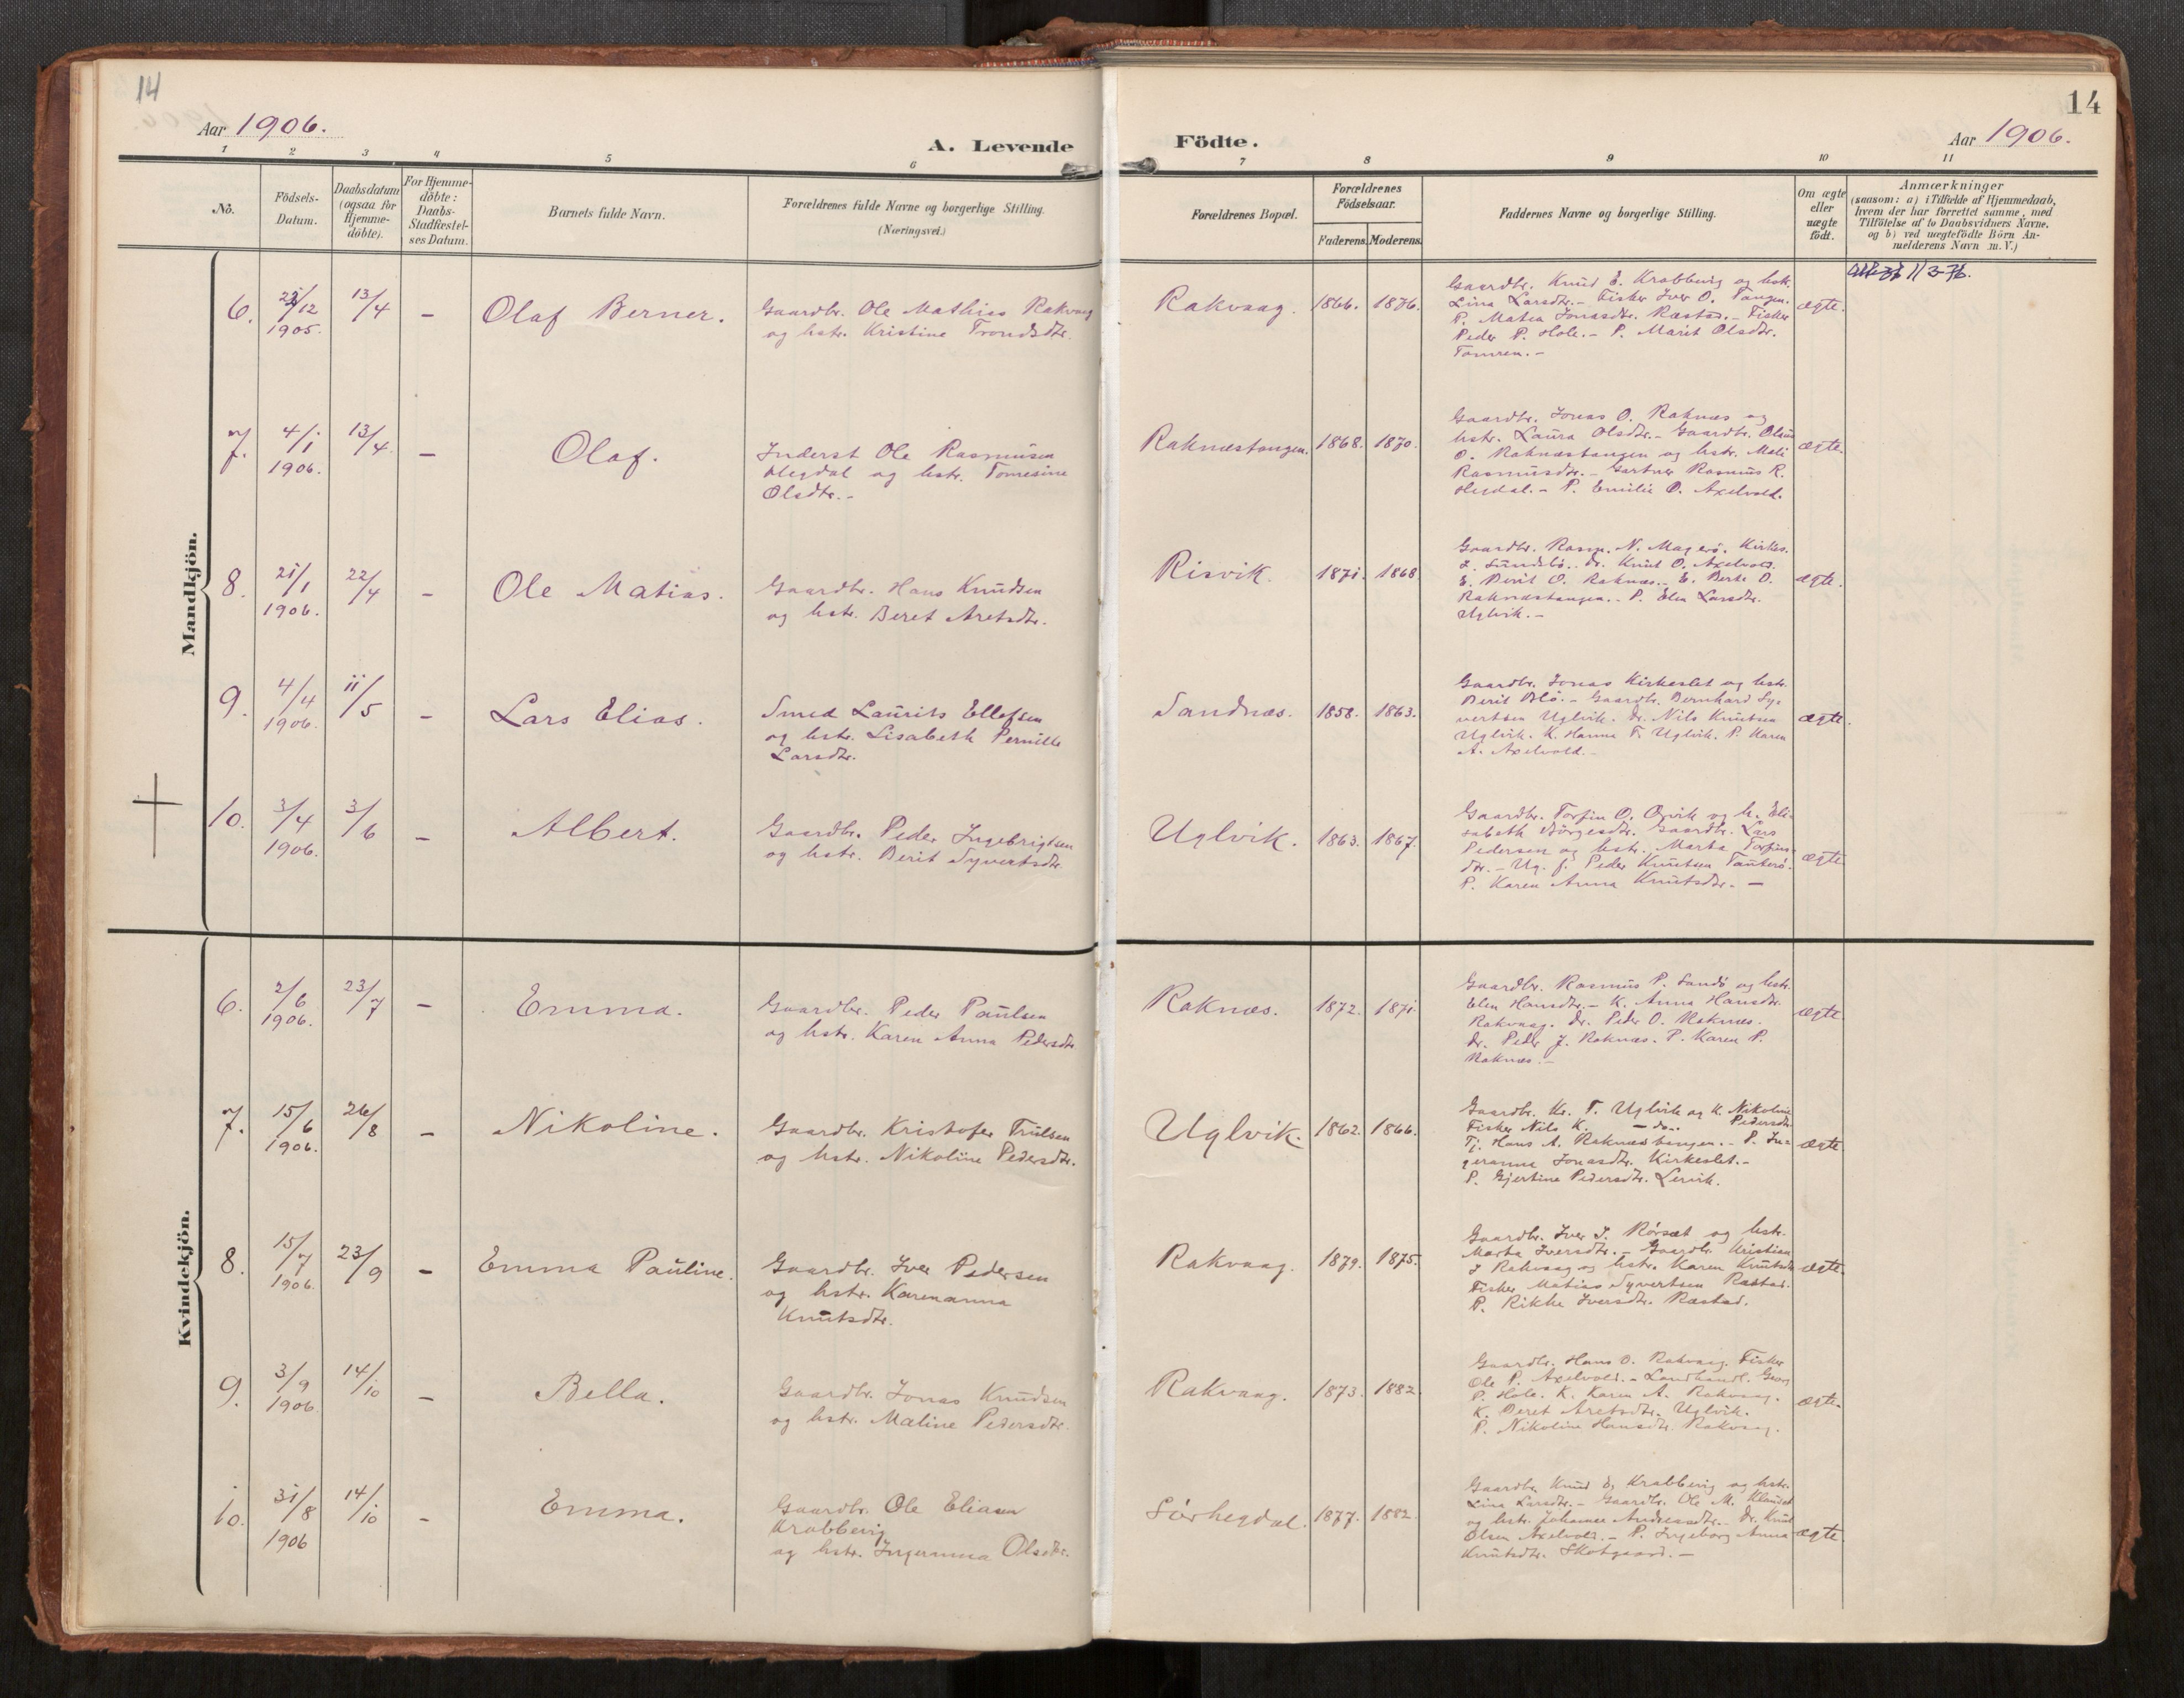 14
Aar 1906.
A. Levende Födte.
14
Aar 1906.
1 2 3 4 5 6 7 8 9 10 11
No.
Födsels-
Datum.
Daabsdatum
(ogsaa for
Hjemme-
döbte).
For Hjemme-
döbte:
Daabs-
Stadfæstel-
ses Datum.
Barnets fulde Navn.
Forældrenes fulde Navne og borgerlige Stilling.
(Næringsvei.)
Forældrenes Bopæl.
Forældrenes
Födselsaar.
Faderens. Moderens.
Faddernes Navne og borgerlige Stilling.
Om ægte
eller
uægte
födt.
Anmærkninger
(saasom: a) i Tilfælde af Hjemmedaab,
hvem der har forrettet samme, med
Tilföielse af to Daabsvidners Navne,
og b) ved uægtefödte Börn An-
melderens Navn m. V.)
Mandkjön.
6.
/12
1905.
13/4
-
Olaf Berner.
Gaardbr. Ole Mathias Rakvaag
og hstr. Kristine Trondsdtr.
Rakvaag.
1866.
1876.
Gaardbr. Knud E. Krabbevig og hstr.
Lina Larsdtr. - Fisker Iver O. Tangen.
P. Matea Jonasdtr. Ræstad. - Fisker
Peder P. Hole. - P. Marit Olsdtr.
Tomren. -
ægte.
11 3-76.
7.
4/1
1906.
13/4
-
Olaf.
Inderst Ole Rasmusen
Hegdal og hstr. Tomesine
Olsdtr. -
Raknæstangen.
1868.
1870.
Gaardbr. Jonas O. Raknæs og
hstr. Laura Olsdtr. - Gaardbr. Olaus
O. Raknæstangen og hstr. Mali
Rasmusdtr. - Gartner Rasmus R.
Hegdal. - P. Emilie O. Axelvold.
ægte.
8.
21/1
1906.
22/4
-
Ole Matias.
Gaardbr. Hans Knudsen
og hstr. Beret Aretsdtr.
Risvik.
1871.
1868
Gaardbr. Rasm. N. Magerö. Kirkes.
L. Sundsbö. Dr. Knut O. Axelvold.
E. Berit O. Raknæs. - E. Berte O.
Raknæstangen. - P. Elen Larsdtr.
Uglvik. -
ægte.
9.
4/4
1906.
11/5
-
Lars Elias.
Smed Laurits Ellefsen
og hstr. Lisabeth Pernille
Larsdtr.
Sandnæs.
1858.
1863.
Gaardbr. Jonas Kirkeslet og hstr.
Berit Blö. - Gaardbr. Bernhard Sy-
vertsen Uglvik. Dr. Nils Knutsen
Uglvik. K. Hanna T. Uglvik. P. Karen
A. Axelvold. -
ægte.
10.
3/4
1906.
3/6
-
Albert.
Gaardbr. Peder Ingebrigtsen
og hstr. Berit Syvertsdtr.
Uglvik.
1863.
1867.
Gaardbr. Torfin O. og h. Eli-
sabeth Börgesdtr. Gaardbr. Lars
Pedersen og hstr. Marta Torfins-
dtr. - Ug. f. Peder Knutsen Tauterö.
P. Karen Anna Knutsdtr. -
ægte
Kvindekjön.
6.
2/6
1906.
23/7
-
Emma.
Gaardbr. Peder Paulsen
og hstr. Karen Anna Pedersdtr.
Raknæs.
1872.
1871.
Gaardbr. Rasmus P. Sandö og hstr.
Elen Hansdtr. - K. Anna Hansdtr.
Rakvaag. Dr. Peder O. Raknæs.
Dr. Peder J. Raknæs. P. Karen P.
Raknæs. -
ægte.
7.
15/6
1906.
26/8
-
Nikoline.
Gaardbr. Kristofer Trulsen
og hstr. Nikoline Pedersdtr.
Uglvik.
1862.
1866.
Gaardbr. Kr. T. Uglvik og K. Nikoline
Fisker Nils K. - do. Pedersdtr.
Tj. Hans A. Raknæstangen. - P. In-
geranna Jonasdtr. Kirkeslet. -
P. Gjertine Pedersdtr. Lervik.
ægte.
8.
15/7
1906.
23/9
-
Emma Pauline.
Gaardbr. Iver Pedersen
og hstr. Karenanna
Knutsdtr.
Rakvaag.
1879.
1875.
Gaardbr. Iver J. Rörsæt og hstr.
Marta Iversdtr. - Gaardbr. Kristian
J Rakvaag og hstr. Karen Knutsdtr.
Fisker Matias Syvertsen Ræstad.
P. Rikke Iversdtr. Ræstad.
ægte.
9.
3/9
1906.
14/10
-
Bella.
Gaardbr. Jonas Knudsen
og hstr. Maline Pedersdtr.
Rakvaag.
1873.
1882.
Gaardbr. Hans O. Rakvaag. Fisker
Ole P. Axelvold. - Landhandl. Georg
P. Hole. K. Karen A. Rakvaag.
K. Beret Aretsdtr. Uglvik.
P. Nikoline Hansdtr. Rakvaag.
ægte.
10.
31/8
1906
14/10
-
Emma.
Gaardbr. Ole Eliasen
Krabbevig
og hstr. Ingeranna Olsdtr.
Sörhegdal.
1877.
1882.
Gaardbr. Knud E. Krabbevig og hstr.
Lina Larsdtr. - Gaardbr. Ole M. Klauset
og hstr. Johanna Andreasdtr. - Dr. Knut
Olsen Axelvold. - P. Ingeborg Anna
Knutsdtr. Skotgaard. -
ægte.